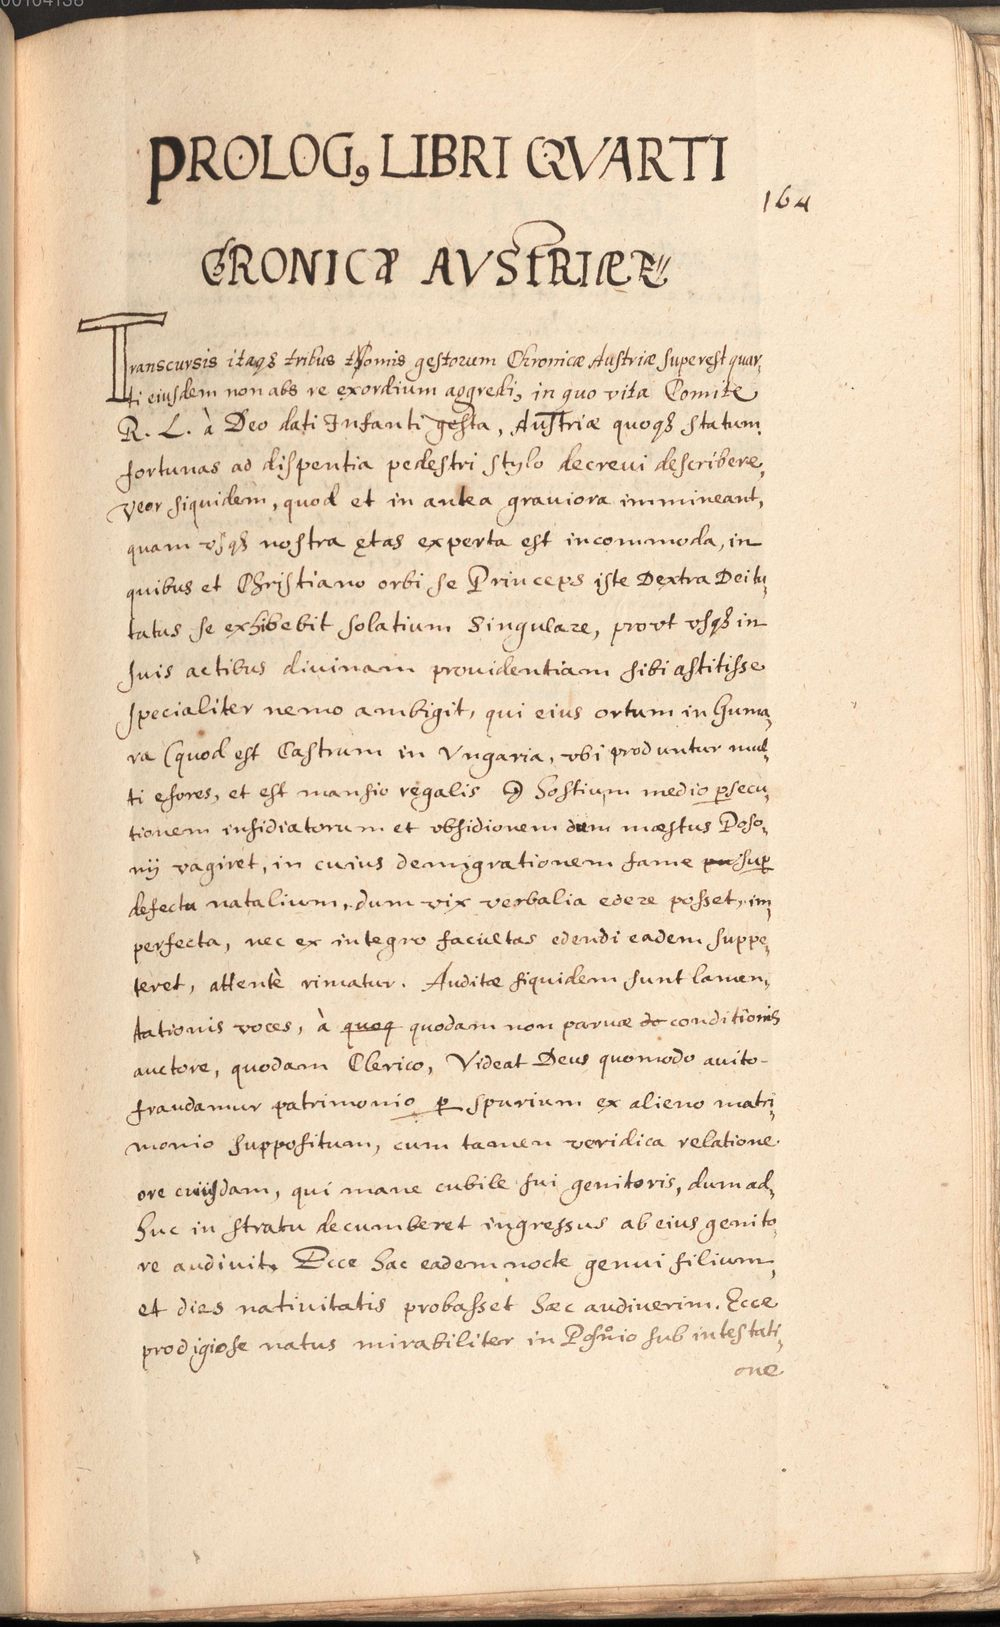 00104138
PROLOG, LIBRI QVARTI
164
CRONICÆ AVSTRIÆ
Transcursis itaqȝ tribus thomis gestorum Chronicæ Austriæ superest quar,
ti eiusdem non abs re exordium aggredi, in quo vita Comite
R. L. à Deo dati Infanti gesta, Austriæ quoqȝ statum
fortunas ac dispentia pedestri stylo decreui describere,
veor siquidem, quod et in antea grauiora immineant,
quam vsqȝ nostra ętas experta est incommoda, in
quibus et Christiano orbi se Princeps iste Dextra Deitu,
tatus se exhibebit solatium Singulare, provt vsqȝ in
suis actibus diuinam prouidentiam sibi astitisse
specialiter nemo ambigit, qui eius ortum in Guma,
ra (quod est Castrum in Vngaria, vbi produntur mul,
ti esores, et est mansio regalis) hostium medio persecu,
tionem insidiatorum et obsidionem dum mæstus Poso,
nij vagiret, in cuius demigrationem fame super
defectu natalium, dum vix verbalia edere posset, im,
perfecta, nec ex integro facultas edendi eadem suppe,
teret, attentè rimatur. Auditæ siquidem sunt lamen,
tationis voces, à quoq quodam non paruæ do conditionis
auctore, quodam Clerico, Videat Deus quomodo auito-
fraudamur patrimonio per spurium ex alieno matri,
monio suppositum, cum tamen veridica relatione
ore cuiusdam, qui mane cubile sui genitoris, dum ad,
huc in stratu decumberet ingressus ab eius genito,
re audiuit, Ecce hac eadem nocte genui filium,
et dies natiuitatis probasset hæc audiuerim. Ecce
prodigiose natus mirabiliter in Posonio sub intestati,
one